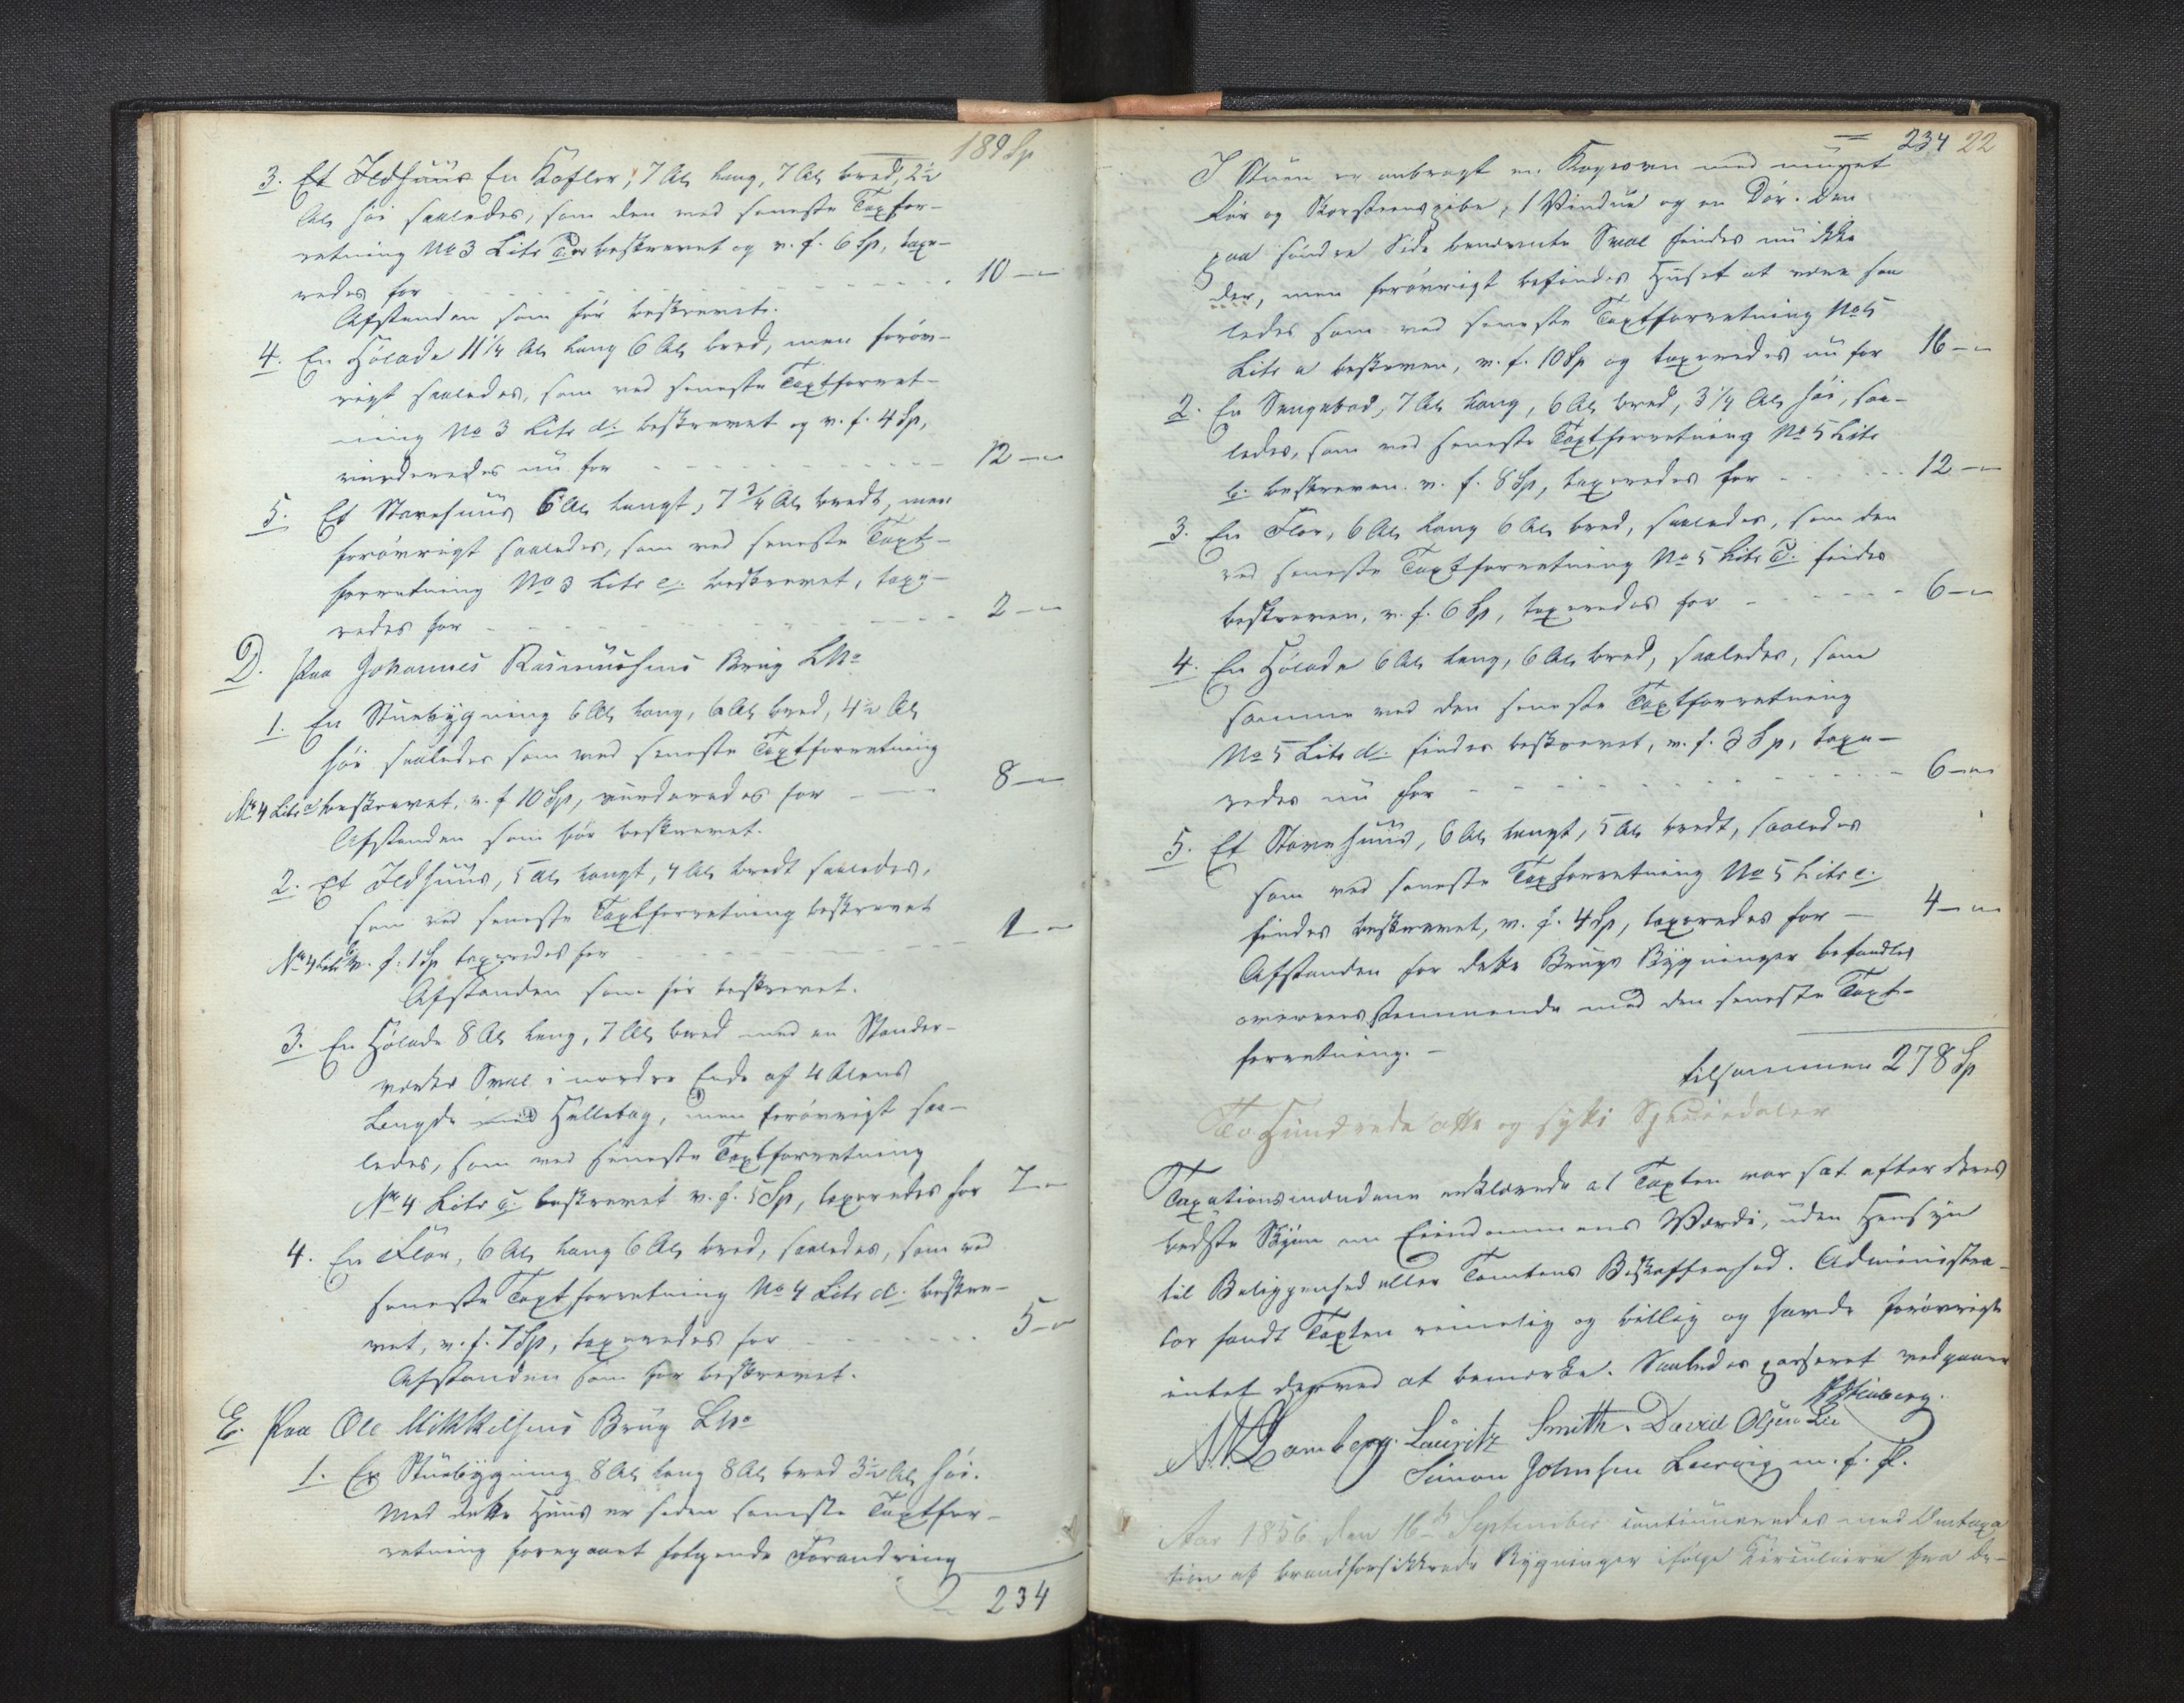 189 Sp
3. Et Ildhuus En Koflor, 7 Al: lang, 7 Al: bred, 2½
Al: høi saaledes, som den ved seneste Taxfor-
retning No 3 Litr c. er beskrevet og v. f. 6 Sp, taxe-
redes for 10 —
Afstanden som før beskrevet.
4. En Hølade 11¼ Al: lang 6 Al: bred, men forøv-
rigt saaledes, som ved seneste Taxtforret-
ning No 3 Litr d. beskrevet og v. f. 4 Sp,
vurderedes nu for 12 —
5. Et Stavehuus 6 Al: langt, 7¾ Al: bredt, men
forøvrigt saaledes, som ved seneste Taxt-
forretning No 3 Litr e. beskrevet, taxe-
redes for 2 —
D. Paa Johannes Rasmussens Brug LNo
1. En Stuebygning 6 Al: lang, 6 Al: bred, 4½ Al:
høi saaledes som ved seneste Taxtforretning
No 4 Litr a beskrevet, v. f. 10 Sp, vurderedes for 8 —
Afstanden som før beskrevet.
2. Et Ildhuus, 5 Al: langt, 4 Al: bredt saaledes,
som ved seneste Taxtforretning beskrevet
No 4 Litr b. v. f. 1 Sp taxeredes for 1 —
Afstanden som før beskrevet.
3. En Hølade 8 Al: lang, 7 Al: bred med en Stander-
værks Sval i nordre Ende af 4 Alens
Længde med Helletag, men forøvrigt saa-
ledes, som ved seneste Taxtforretning
No 4 Litr c. beskrevet v. f. 5 Sp, taxeredes for 7 —
4. En Flor, 6 Al: lang 6 Al: bred, saaledes, som ved
seneste Taxtforretning No 4 Litr d. beskre-
vet, v. f. 7 Sp, taxeredes for 5 —
Afstanden som før beskrevet.
E. Paa Ole Mikkelsens Brug LNo
1. En Stuebygning 8 Al: lang 8 Al: bred 3½ Al: høi.
Med dette Huus er siden seneste Taxtfor-
retning foregaaet følgende Forandring
234
234 22
I Stuen er anbragt en Kogeovn med muret
Rør og Skorsteenspibe, 1 Vindue og en Dør. Den
paa søndre Side benævnte Sval findes nu ikke
der, men forøvrigt befindes Huset at være saa
ledes som ved seneste Taxtforretning No 5
Litr a beskreven, v. f. 10 Sp og taxeredes nu for 16 —
2. En Sengebod, 7 Al: lang, 6 Al: bred, 3¼ Al: høi, saa-
ledes, som ved seneste Taxtforretning No 5 Litr
b. beskreven v. f. 8 Sp, taxeredes for 12 —
3. En Flor, 6 Al: lang 6 Al: bred, saaledes, som den
ved seneste Taxtforretning No 5 Litr c. findes
beskreven, v. f. 6 Sp, taxeredes for 6 —
4. En Hølade 6 Al: lang, 6 Al: bred, saaledes, som
samme ved den seneste Taxtforretning
No 5 Litr d. findes beskrevet, v. f. 3 Sp, taxe-
redes nu for 6 —
5. Et Stavehuus, 6 Al: langt, 5 Al: bredt, saaledes
som ved seneste Taxforretning No 5 Litr e.
findes beskrevet, v. f. 4 Sp, taxeredes for 4 —
Afstanden for dette Brugs Bygninger befandtes
overeensstemmende med den seneste Taxt-
forretning. —
tilsammen 278 Sp
To Hundrede otte og sytti Speciedaler
Taxationsmændene erklærede at Taxten var sat efter deres
bedste Skjøn om Eiendommens Værdi, uden Hensyn
til Beliggenhed eller Tomtens Beskaffenhed. Administra-
tor fandt Taxten rimelig og billig og havde forøvrigt
intet derved at bemærke. Saaledes passeret vedgaaer
N. Lamberg. Lauritz Smith. David Olsen Lie
Simon Johnsen Leervig m. f. P.
Aar 1856 den 16de September continueredes med Omtaxa
tion af brandforsikkrede Bygninger ifølge Circulaire fra De-